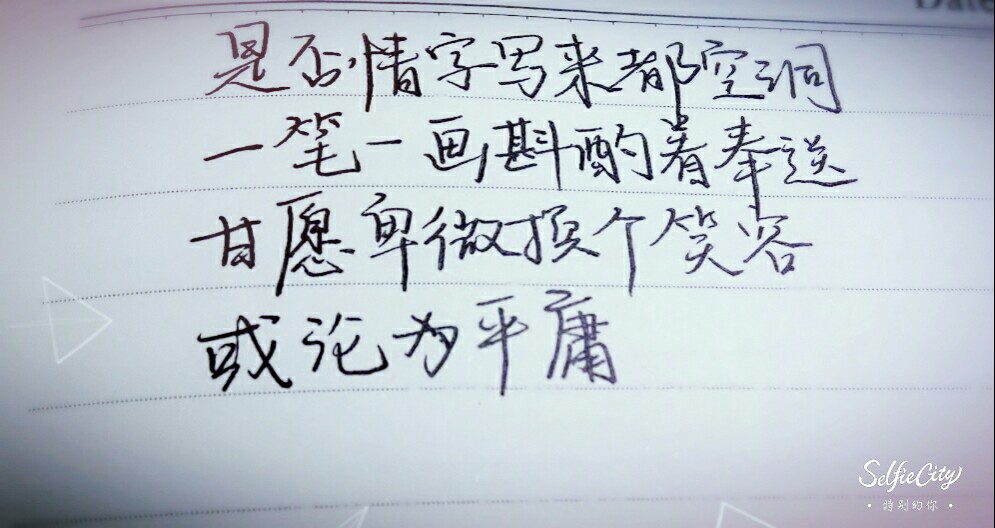 Date
是否情字写来都空洞
一笔一画斟酌着奉送
甘愿卑微换个笑容
或论为平庸
SelfieCity
· 特别的你 ·